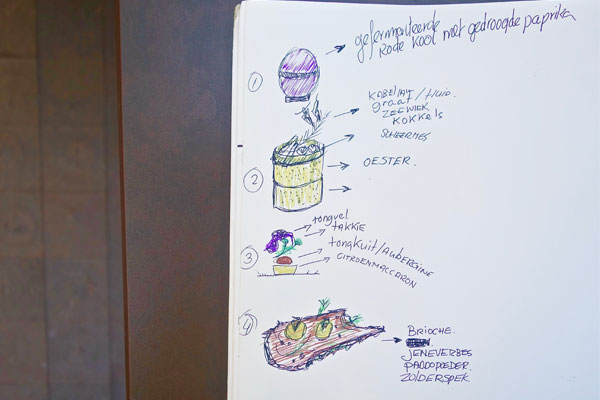 gefermenteerde
Rode kool met gedroogde paprika
1
KABELJAUW
graat / Huid.
ZEEWIER
KOKKELS
SCHEERMES
2
OESTER.
tongvel
TAKKIE
3
tongkuit/AUBERGINE
CITROENMACCARON
4
BRIOCHE.
JENEVERBES
POEDER.
ZOLDERSPEK